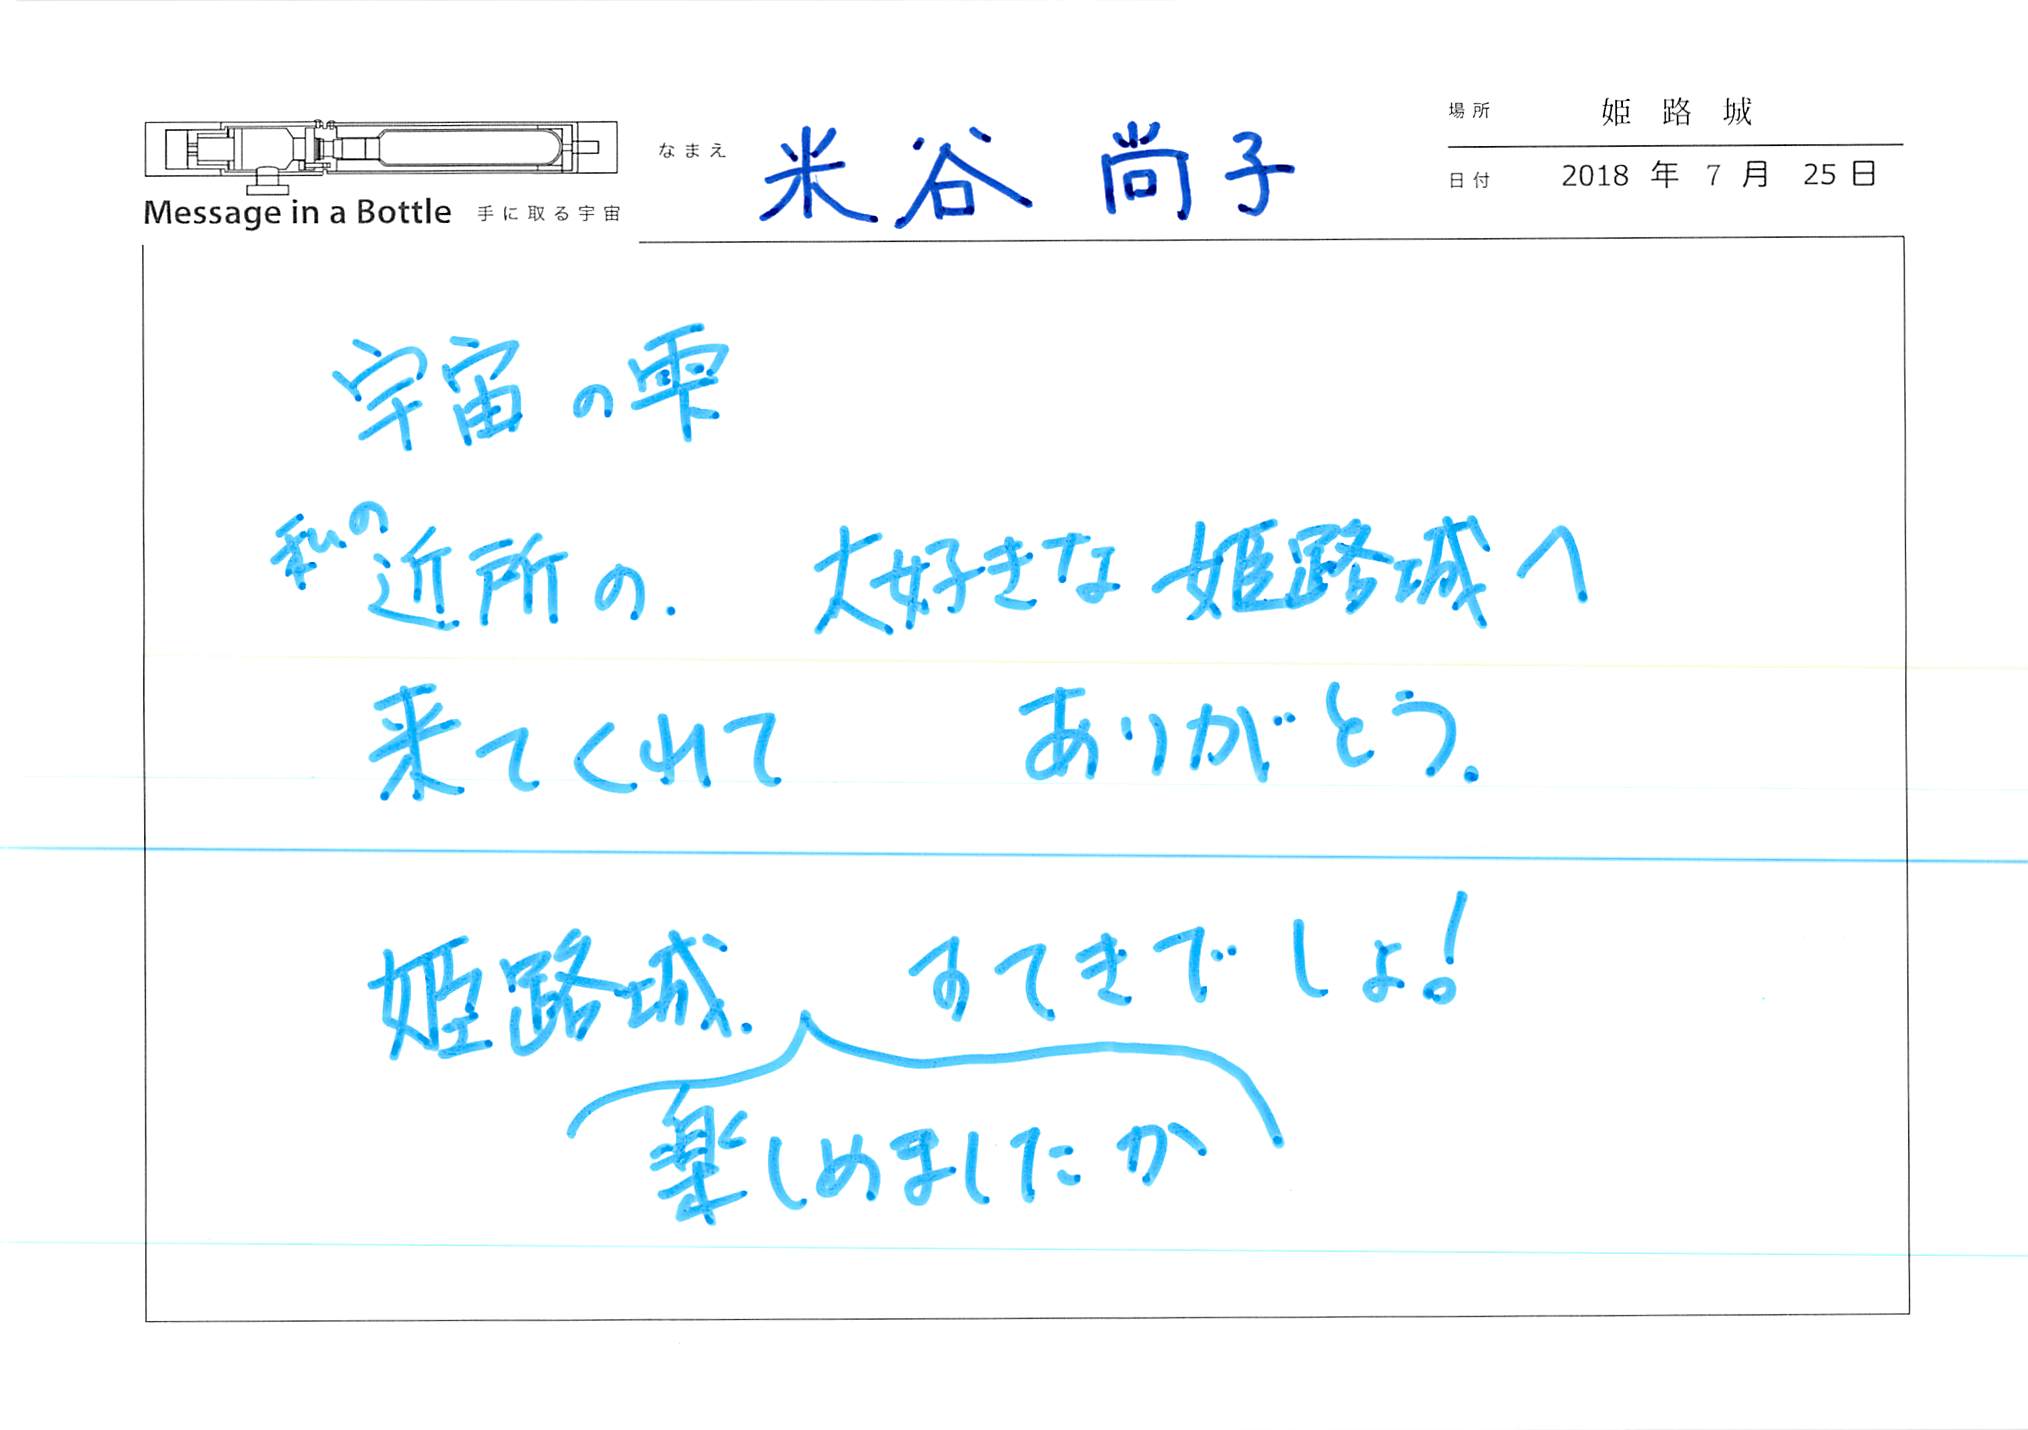 場所 姫路城
なまえ 米谷 尚子
日付 2018 年 7 月 25 日
Message in a Bottle 手に取る宇宙
宇宙の雫
私の近所の. 大好きな姫路城へ
来てくれて ありがとう.
姫路城. すてきでしょ!
楽しめましたか